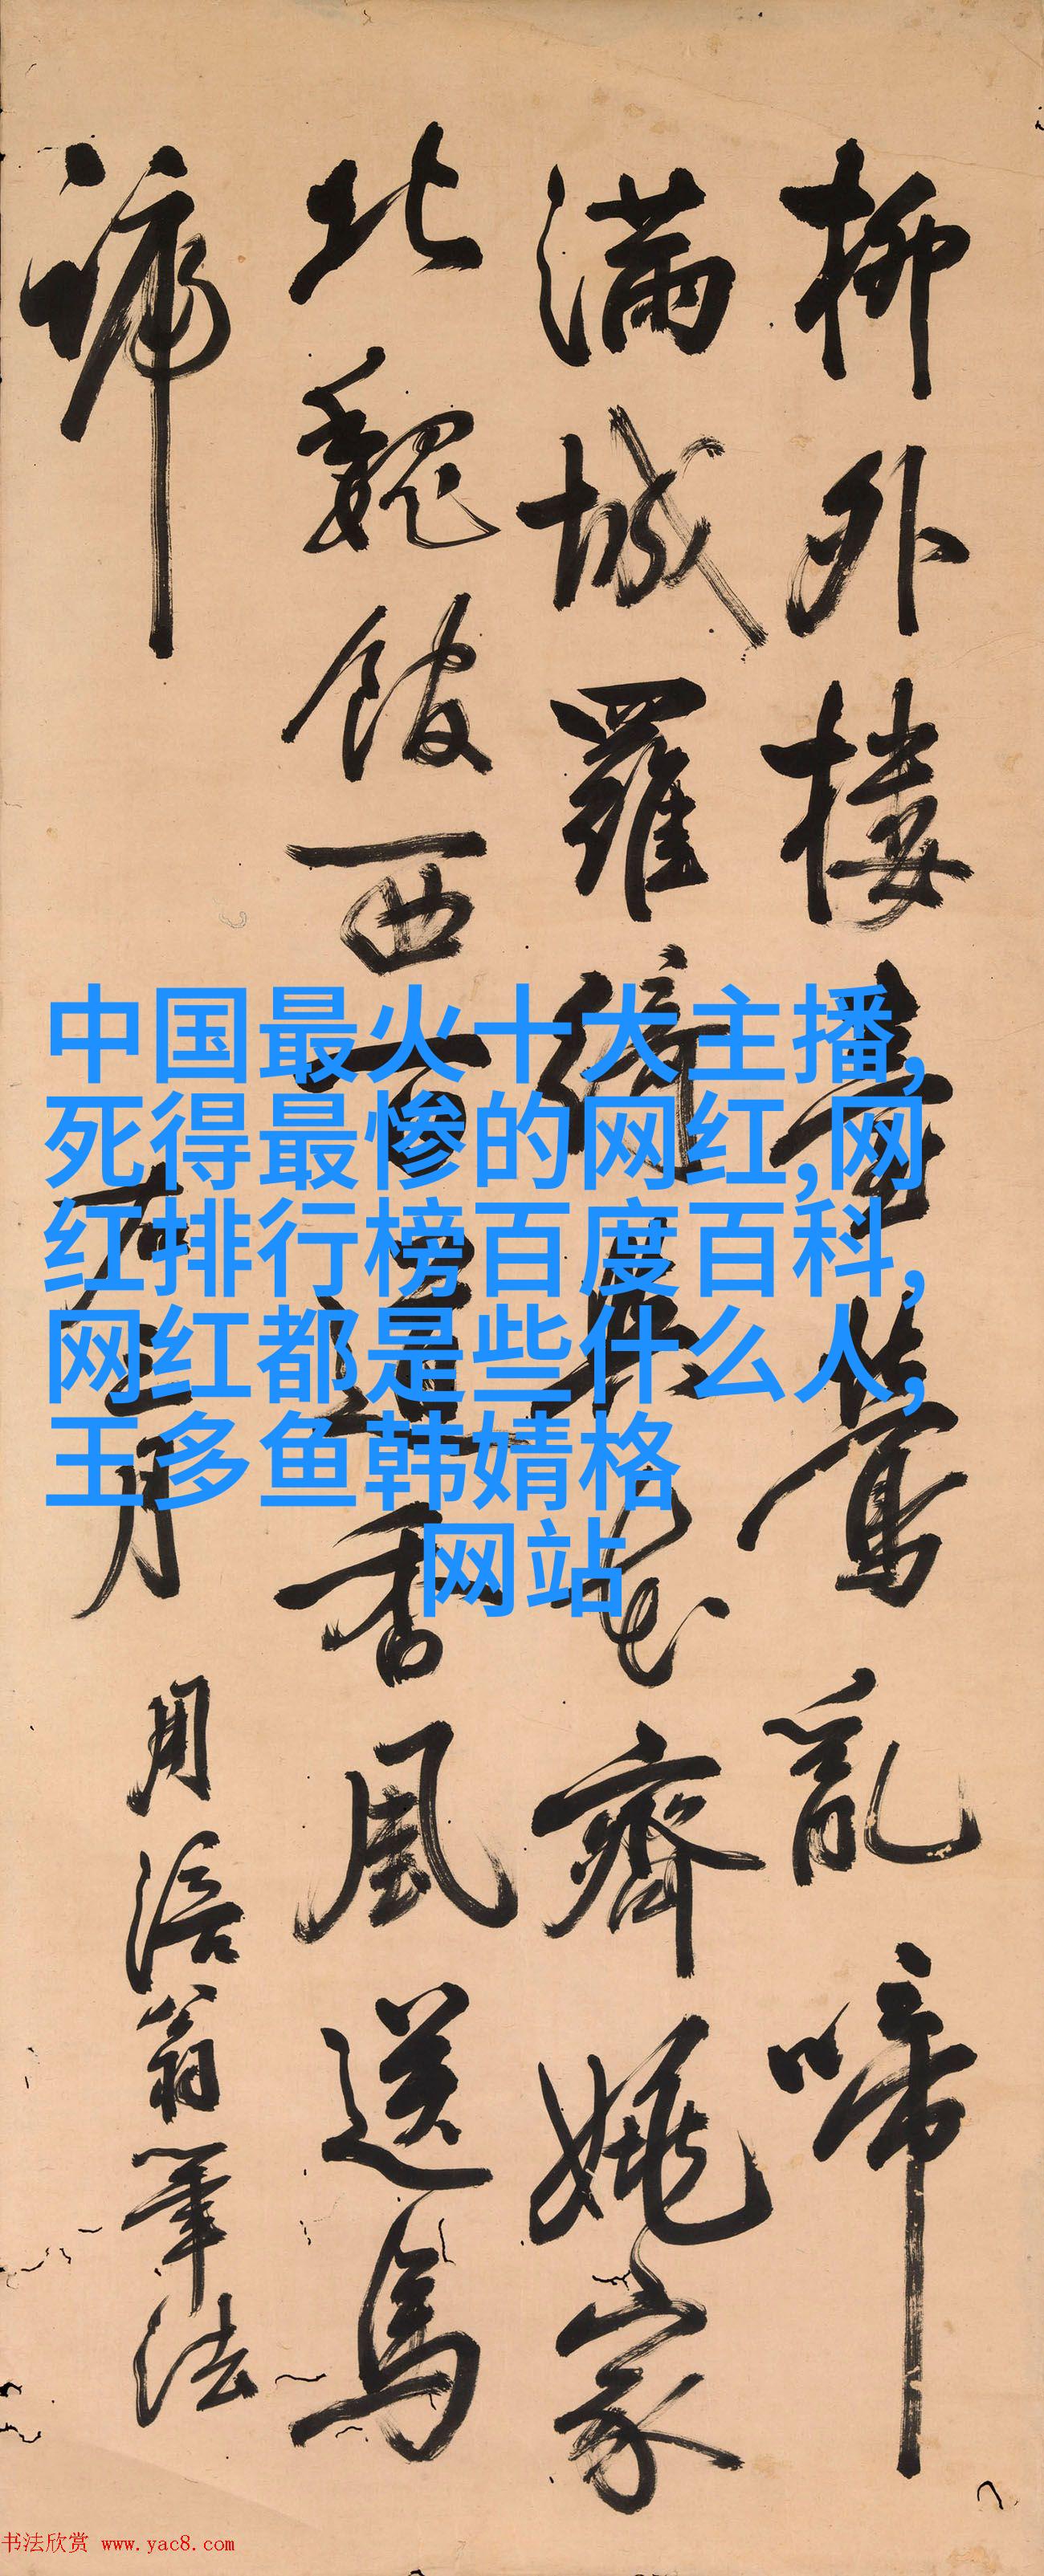 中国最火十大主播,
死得最惨的网红,网
红排行榜百度百科,
网红都是些什么人,
王多鱼韩婧格
网站
柳外樓臺鶯亂啼
滿城羅綺花齊姚家
北魏西百香風送馬
蹄月
用涪翁筆法
书法欣赏 www.yac8.com